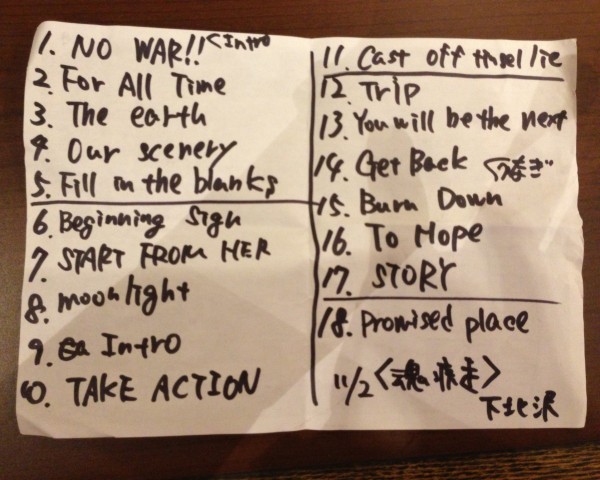 1. NO WAR!! <Intro
2. For All Time
3. The earth
4. Our scenery
5. Fill in the blanks
6. Beginning Sign
7. START FROM HER
8. moonlight
9. Intro
10. TAKE ACTION
11. Cast off the lie
12. Trip
13. You will be the next
14. Get Back くつなぎ
15. Burn Down
16. To Hope
17. STORY
18. Promised place
11/2 <魂疾走>
下北沢